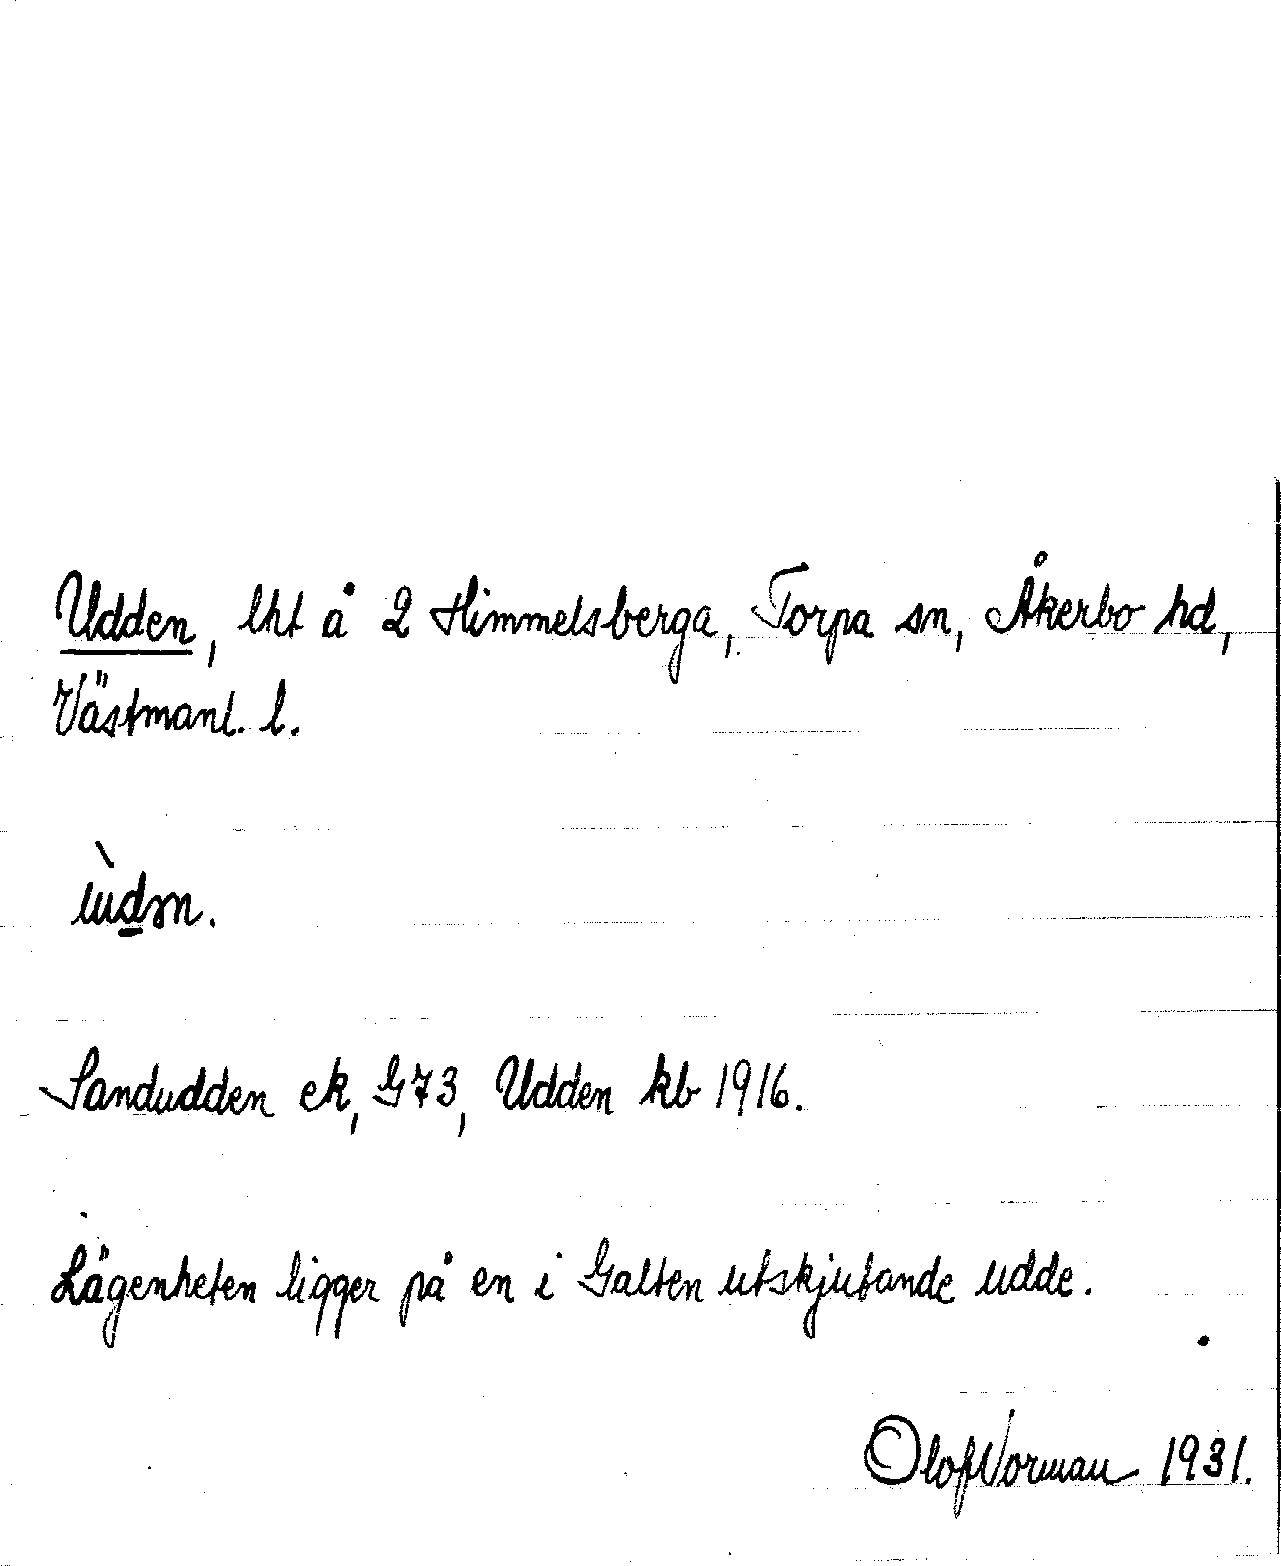 Udden, lht å 2 Himmelsberga, Torpa sn, Åkerbo hd,
Västmanl. l.
Sandudden ek, G73, Udden kb 1916.
Lägenheten ligger på en i Galten utskjutande udde.
Olof Norman 1931.